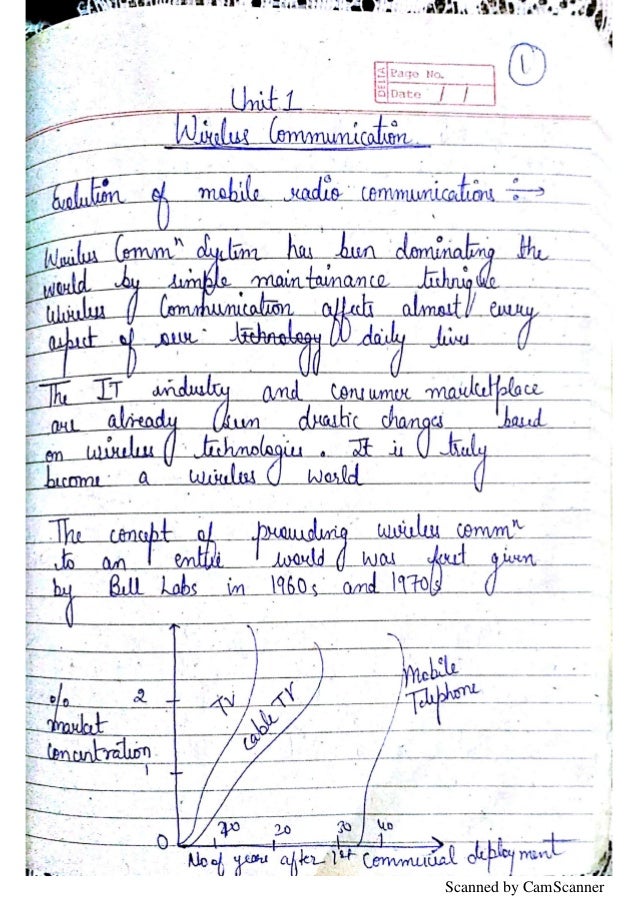 1
DELTA
Page No.
Date / /
Unit 1
Wireless Communication
Evolution of mobile radio communications ÷→
Wireless Commⁿ System has been dominating the
world by simple maintainance technique
Wireless Communication affects almost every
aspect of our technology daily lives
The IT industry and consumer marketplace
are already seen drastic changes based
on wireless technologies. It is truly
become a wireless world
The concept of prouding wireless commⁿ
to an entire world was first given
by Bell Labs in 1960s and 1970s
% market concentration
2
1
0
TV
cable TV
Mobile
Telephone
10 20 30 40
No of years after 1st Commercial deployment
Scanned by CamScanner